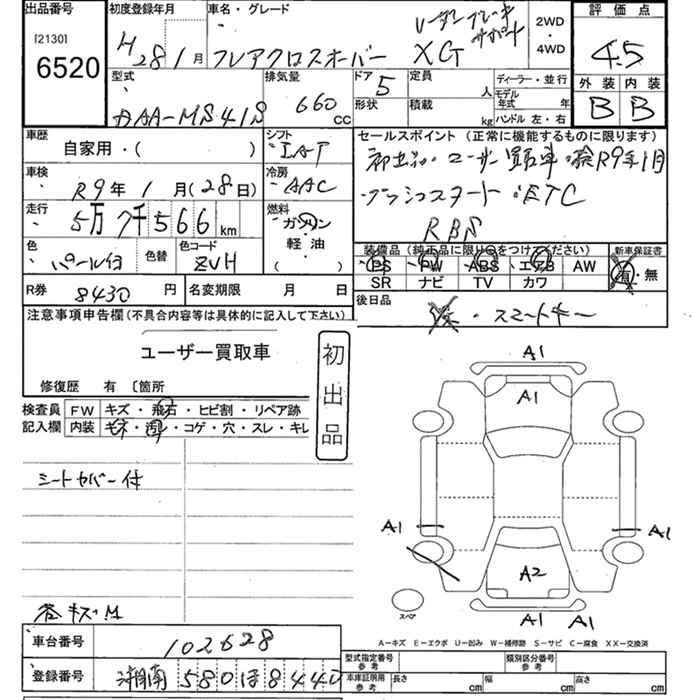 出品番号
[2130]
6520
初度登録年月
H28 1月
車名・グレード
レーダーブレーキ
サポート
フレアクロスオーバー XG
2WD
・
4WD
評価点
4.5
外装 内装
B B
型式
DAA-MS41S
排気量
660 cc
ドア 5
形状
定員 人
積載 kg
ディーラー・並行
モデル年式 年
ハンドル 左・右
車歴
自家用・( )
シフト
IAT
車検
R9年1月(28日)
冷房
AAC
走行
5万7千566km
燃料
ガソリン
軽油
( )
色
パール白
色替
色コード
ZVH
R券 8430円
名変期限 月 日
セールスポイント (正常に機能するものに限ります)
初出品・ユーザー買取車・検R9年1月
プッシュスタート・ETC
RBS
装備品(純正品に限り○をつけてください)
PS PW ABS エアB AW
SR ナビ TV カワ
新車保証書
有・無
後日品
・スマートキー
注意事項申告欄(不具合内容等は具体的に記入して下さい)
ユーザー買取車
修復歴 有 〔箇所
初出品
検査員記入欄
FW キズ・飛石・ヒビ割・リペア跡
内装 ・コゲ・穴・スレ・キレ
シートカバー付
キズ・M
車台番号 102628
登録番号 湘南 580 ほ 8440
A1
A1
A1
A1
A2
A1 A1
スペア
A-キズ E-エクボ U-凹み W-補修跡 S-サビ C-腐食 XX-交換済
型式指定番号 参考
類別区分番号 参考
車庫証明用 参考
長さ cm 幅 cm 高さ cm